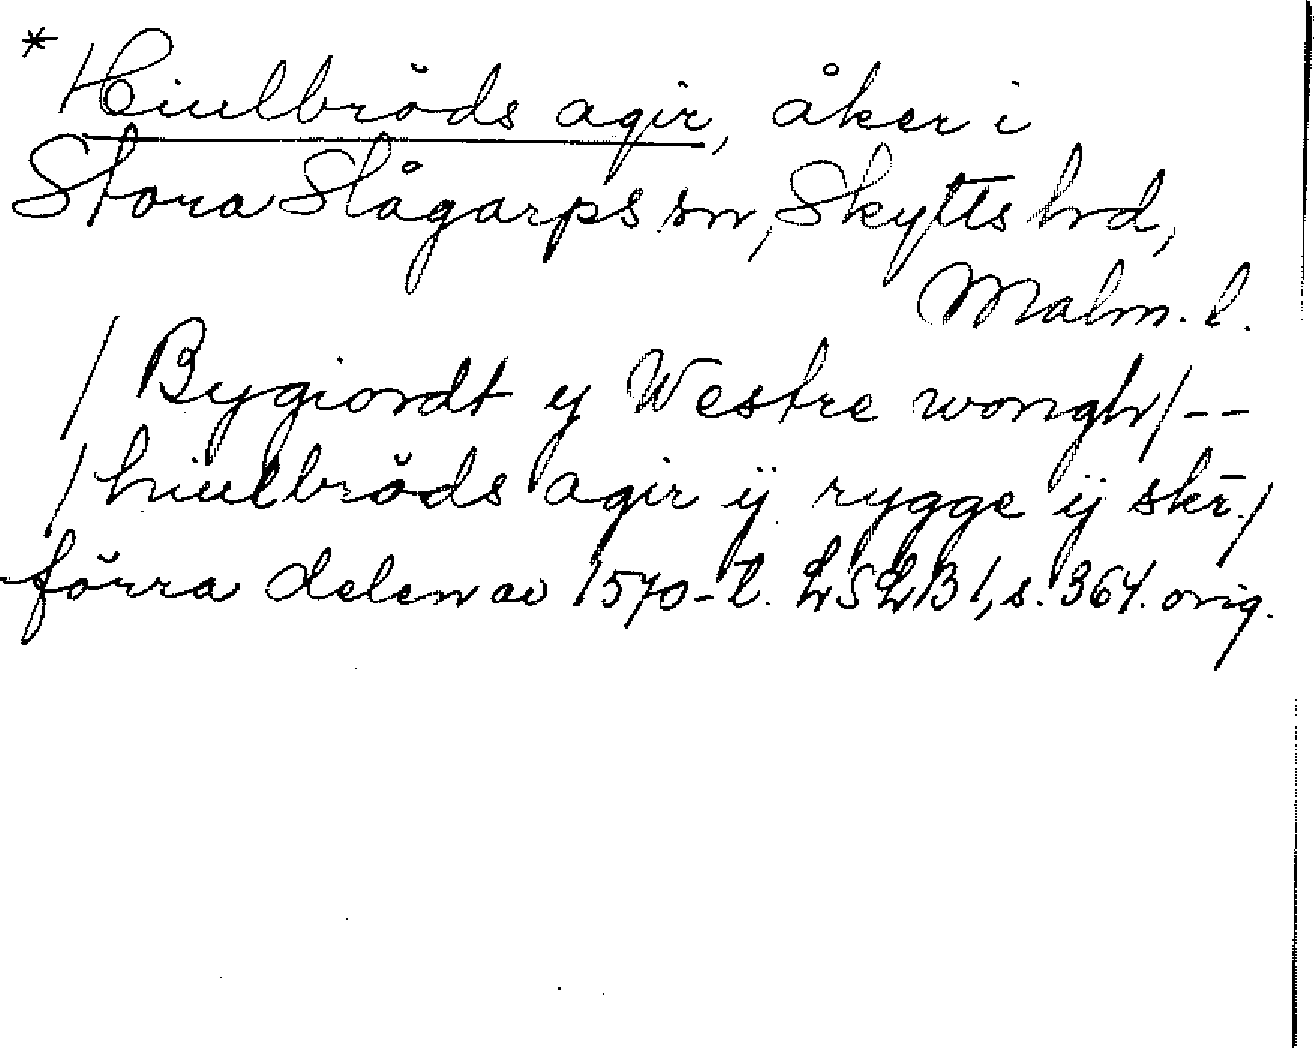 * Hiulbröds agir, åker i
Stora Slågarps sn, Skytts hd,
Malm. l.
/ Bygiordt y Westre wongh / --
/ hiulbröds agir ij rygge ij skr̄. /
förra delen av 1570-t. LSLB1, s. 364. orig.